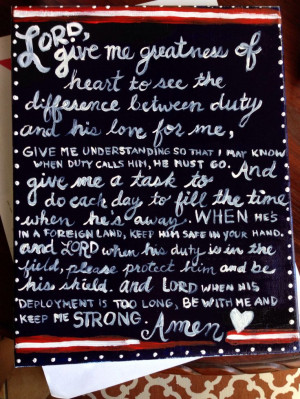 LORD,
give me greatness of
heart to see the
difference between duty
and his love for me,
GIVE ME UNDERSTANDING SO THAT I MAY KNOW
WHEN DUTY CALLS HIM, HE MUST GO. And
give me a task to
do each day to fill the time
when he's away. WHEN HE'S
IN A FOREIGN LAND, KEEP HIM SAFE IN YOUR HAND.
and LORD when his duty is in the
field, please protect him and be
his shield. and LORD WHEN HIS
DEPLOYMENT IS TOO LONG, BE WITH ME AND
KEEP ME STRONG. Amen